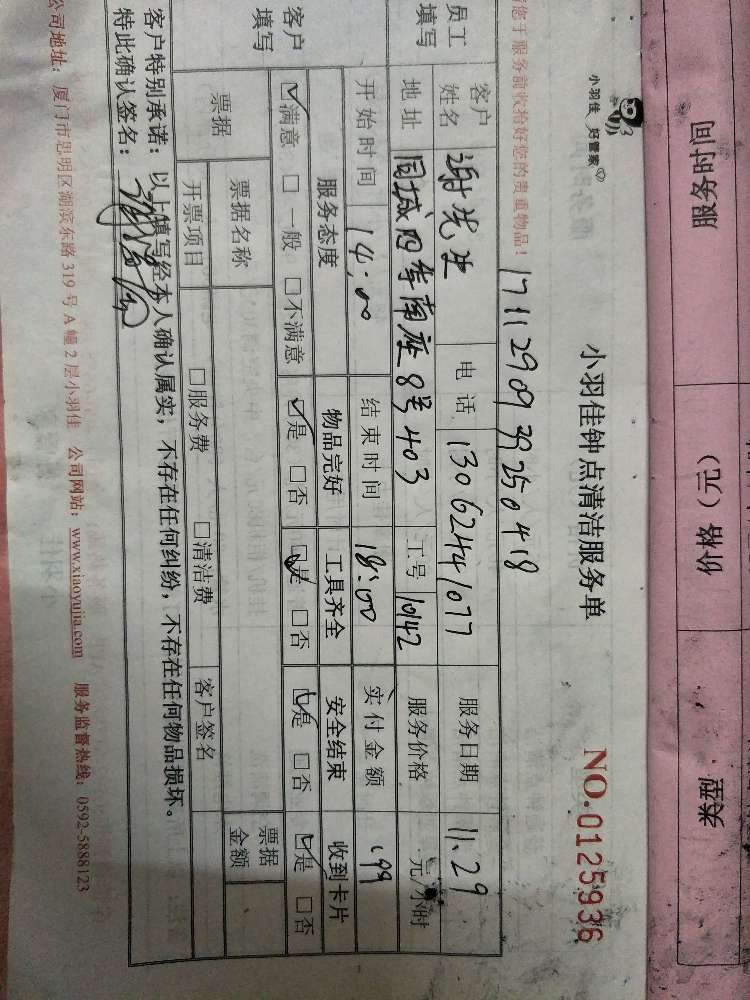 服务时间 价格（元） 类型
小羽佳 好管家
小羽佳钟点清洁服务单
NO.0125936
您于服务前收拾好您的贵重物品！
1711290939250418
员工填写
客户姓名 谢先生 电话 13062441077 服务日期 11.29
地址 同城四季南座8号403 工号 10142 服务价格 元/小时
开始时间 14:00 结束时间 18:00 实付金额 199
客户填写
服务态度 物品完好 工具齐全 安全结束 收到卡片
☑满意 □一般 □不满意 ☑是 □否 ☑是 □否 ☑是 □否 ☑是 □否
票据 票据名称 票据金额
开票项目 □服务费 □清洁费 客户签名
客户特别承诺：以上填写经本人确认属实，不存在任何纠纷，不存在任何物品损坏。
特此确认签名：
公司地址：厦门市思明区湖滨东路319号A幢2层小羽佳 公司网站：www.xiaoyujia.com 服务监督热线：0592-5888123